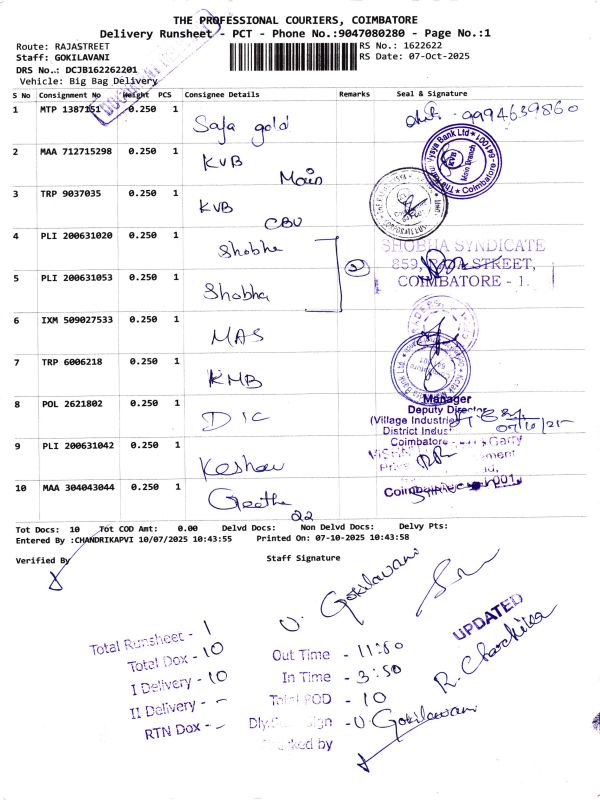 THE PROFESSIONAL COURIERS, COIMBATORE
Delivery Runsheet - PCT - Phone No.:9047080280 - Page No.:1
Route: RAJASTREET
RS No.: 1622622
Staff: GOKILAVANI
RS Date: 07-Oct-2025
DRS No.: DCJB162262201
Vehicle: Big Bag Delivery
S No Consignment No Weight PCS Consignee Details Remarks Seal & Signature
1 MTP 1387151 0.250 1 Safa gold 9994639860
2 MAA 712715298 0.250 1 KVB Main
3 TRP 9037035 0.250 1 KVB CBU
4 PLI 200631020 0.250 1 Shobha
5 PLI 200631053 0.250 1 Shobha
2
SHOBHA SYNDICATE
859, RAJA STREET,
COIMBATORE - 1.
6 IXM 509027533 0.250 1 MAS
7 TRP 6006218 0.250 1 KMB
8 POL 2621802 0.250 1 DIC
Manager
Deputy Director
(Village Industries)
District Indus
Coimbatore
07/10/25
9 PLI 200631042 0.250 1 Keshav
10 MAA 304043044 0.250 1 Geetha
22
Tot Docs: 10 Tot COD Amt: 0.00 Delvd Docs: Non Delvd Docs: Delvy Pts:
Entered By :CHANDRIKAPVI 10/07/2025 10:43:55 Printed On: 07-10-2025 10:43:58
Verified By
Staff Signature
U. Gokilavani
Total Runsheet - 1
Total Dox - 10
I Delivery - 10
II Delivery - -
RTN Dox - -
Out Time - 11:50
In Time - 3:50
Total POD - 10
Sign - U. Gokilavani
Checked by
UPDATED